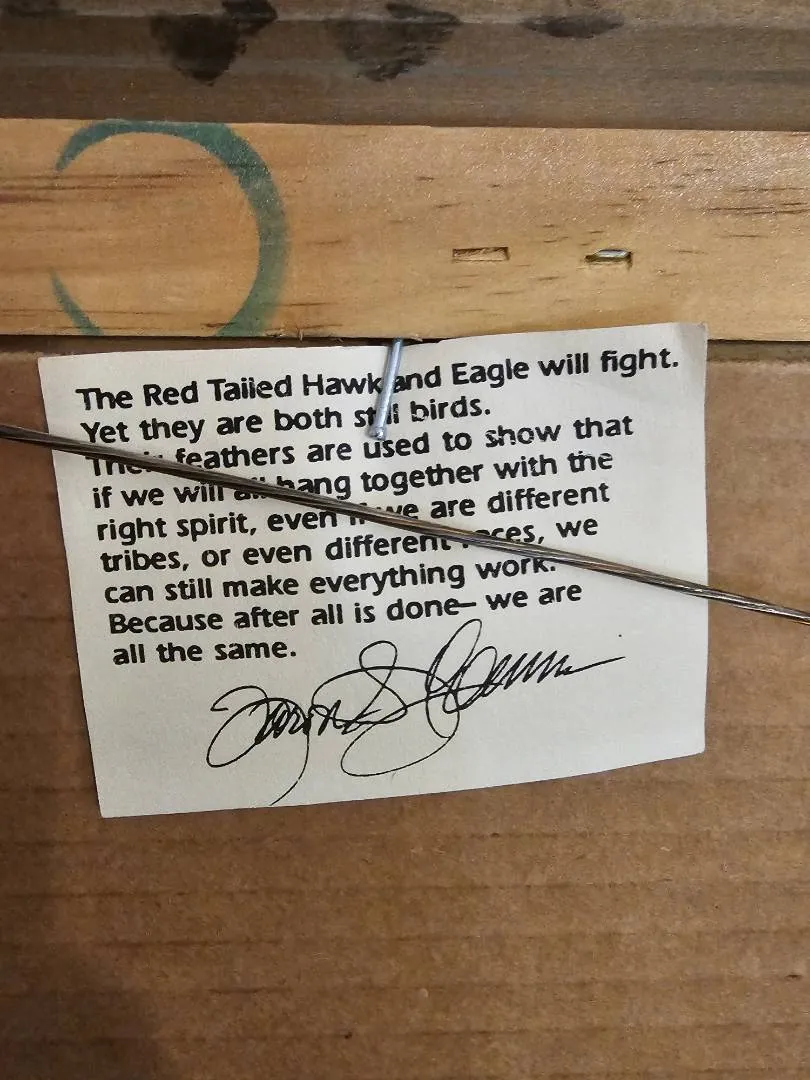 The Red Tailed Hawk and Eagle will fight.
Yet they are both still birds.
Their feathers are used to show that
if we will all hang together with the
right spirit, even if we are different
tribes, or even different races, we
can still make everything work.
Because after all is done— we are
all the same.